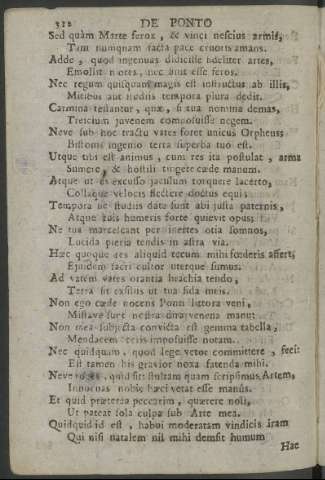 312 DE PONTO
Sed quàm Marte ferox, & vinci nescius armis,
Tam numquam facta pace cruoris amans.
Adde, quod ingenuas didicisse fideliter artes,
Emollit mores, nec sinit esse feros.
Nec regum quisquam magis est instructus ab illis,
Mitibus aut studiis tempora plura dedit.
Carmina testantur, quæ, si tua nomina demas,
Treicium juvenem composuisse negem.
Neve sub hoc tractu vates foret unicus Orpheus;
Bistonis ingenio terra superba tuo est.
Utque tibi est animus, cum res ita postulat, arma
Sumere, & hostili tingere cæde manum.
Atque ut es excusso jaculum torquere lacerto,
Collaque velocis flectere doctus equi:
Tempora sic studiis data sunt ubi justa paternis,
Atque suis humeris forte quievit opus;
Ne tua marcescant per inertes otia somnos,
Lucida pieria tendis in astra via.
Hæc quoque res aliquid tecum mihi fœderis affert,
Ejusdem sacri cultor uterque sumus.
Ad vatem vates orantia brachia tendo,
Terra sit exsiliis ut tua fida meis.
Non ego cæde nocens Ponti littora veni,
Mistave sunt nostra dira venena manu:
Non mea subjecta convicta est gemma tabella,
Mendacem linis imposuisse notam.
Nec quidquam, quod lege vetor committere, feci:
Est tamen his gravior noxa fatenda mihi.
Neve roges, quid sit: stultam quam scripsimus Artem,
Innocuas nobis hæc vetat esse manus.
Et quid præterea peccarim, quærere noli,
Ut pateat sola culpa sub Arte mea.
Quidquid id est, habui moderatam vindicis iram
Qui nisi natalem nil mihi demsit humum
Hæc